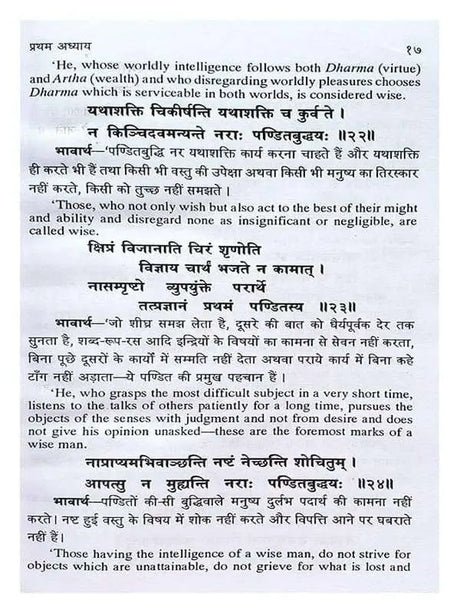 प्रथम अध्याय १७
'He, whose worldly intelligence follows both Dharma (virtue)
and Artha (wealth) and who disregarding worldly pleasures chooses
Dharma which is serviceable in both worlds, is considered wise.
यथाशक्ति चिकीर्षन्ति यथाशक्ति च कुर्वते ।
न किञ्चिदवमन्यन्ते नराः पण्डितबुद्धयः ॥२२॥
भावार्थ—'पण्डितबुद्धि नर यथाशक्ति कार्य करना चाहते हैं और यथाशक्ति
ही करते भी हैं तथा किसी भी वस्तु की उपेक्षा अथवा किसी भी मनुष्य का तिरस्कार
नहीं करते, किसी को तुच्छ नहीं समझते ।
'Those, who not only wish but also act to the best of their might
and ability and disregard none as insignificant or negligible, are
called wise.
क्षिप्रं विजानाति चिरं शृणोति
विज्ञाय चार्थं भजते न कामात् ।
नासम्पृष्टो व्युपयुंक्ते परार्थे
तत्प्रज्ञानं प्रथमं पण्डितस्य ॥२३॥
भावार्थ—'जो शीघ्र समझ लेता है, दूसरे की बात को धैर्यपूर्वक देर तक
सुनता है, शब्द-रूप-रस आदि इन्द्रियों के विषयों का कामना से सेवन नहीं करता,
बिना पूछे दूसरों के कार्यों में सम्मति नहीं देता अथवा पराये कार्य में बिना कहे
टाँग नहीं अड़ाता—ये पण्डित की प्रमुख पहचान हैं ।
'He, who grasps the most difficult subject in a very short time,
listens to the talks of others patiently for a long time, pursues the
objects of the senses with judgment and not from desire and does
not give his opinion unasked—these are the foremost marks of a
wise man.
नाप्राप्यमभिवाञ्छन्ति नष्टं नेच्छन्ति शोचितुम् ।
आपत्सु न मुह्यन्ति नराः पण्डितबुद्धयः ॥२४॥
भावार्थ—पण्डितों की-सी बुद्धिवाले मनुष्य दुर्लभ पदार्थ की कामना नहीं
करते। नष्ट हुई वस्तु के विषय में शोक नहीं करते और विपत्ति आने पर घबराते
नहीं हैं।
'Those having the intelligence of a wise man, do not strive for
objects which are unattainable, do not grieve for what is lost and